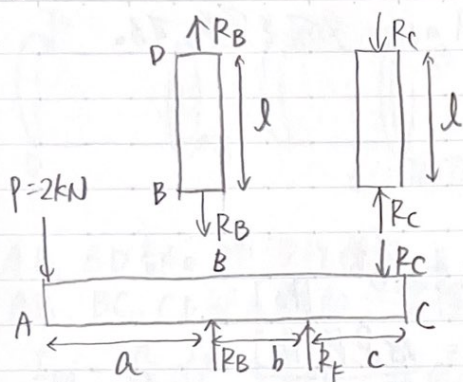 D
R_B
l
B
R_B
R_C
l
R_C
P=2kN
B
R_C
A
C
a
R_B
b
R_F
c